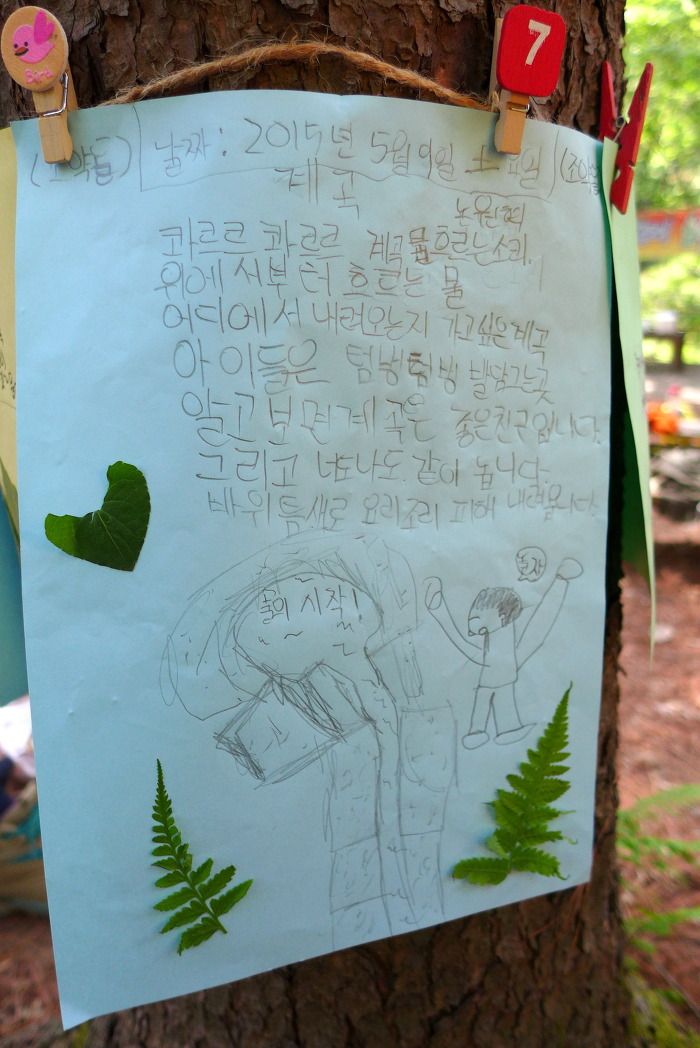 7
(조약돌) 날짜: 2015년 5월 9일 土요일 (조약돌
계곡
콰르르 콰르르 계곡물흐르는소리.
위에서부터 흐르는 물
어디에서 내려오는지 가고싶은계곡
아이들은 텀벙텀벙 발담그는곳
알고보면 계곡은 좋은친구입니다.
그리고 너도나도 같이 놉니다.
바위틈새로 요리조리 피해 내려옵니다.
놀자
물의 시작!